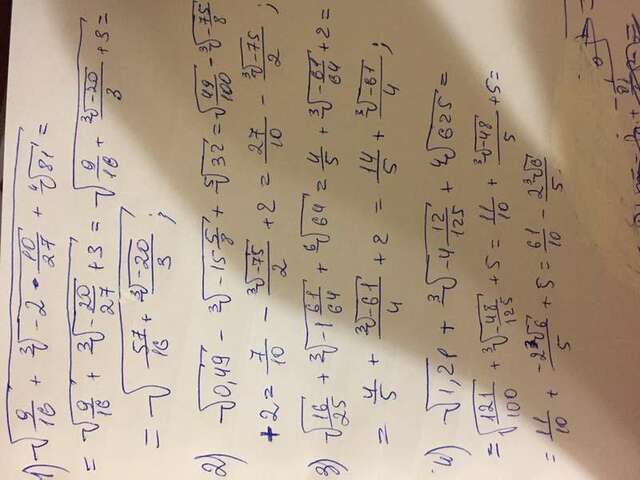 1) √(9/16 + ∛(-2 · 10/27) + ⁴√81) =
= √(9/16 + ∛(-20/27) + 3) = √(9/16 + ∛-20/3 + 3) =
= √(57/16 + ∛-20/3) ;
2) √0,49 - ∛(-15 5/8) + ⁵√32 = √(49/100) - ∛(-75/8)
+ 2 = 7/10 - ∛-75/2 + 2 = 27/10 - ∛-75/2 ;
3) √(16/25) + ∛(-1 61/64) + ⁶√64 = 4/5 + ∛(-61/64) + 2 =
= 4/5 + ∛-61/4 + 2 = 14/5 + ∛-61/4 ;
4) √1,21 + ∛(-4 12/125) + ⁴√625 =
= √(121/100) + ∛(-48/125) + 5 = 11/10 + ∛-48/5 + 5 =
= 11/10 + -2∛6/5 + 5 = 61/10 - 2∛6/5